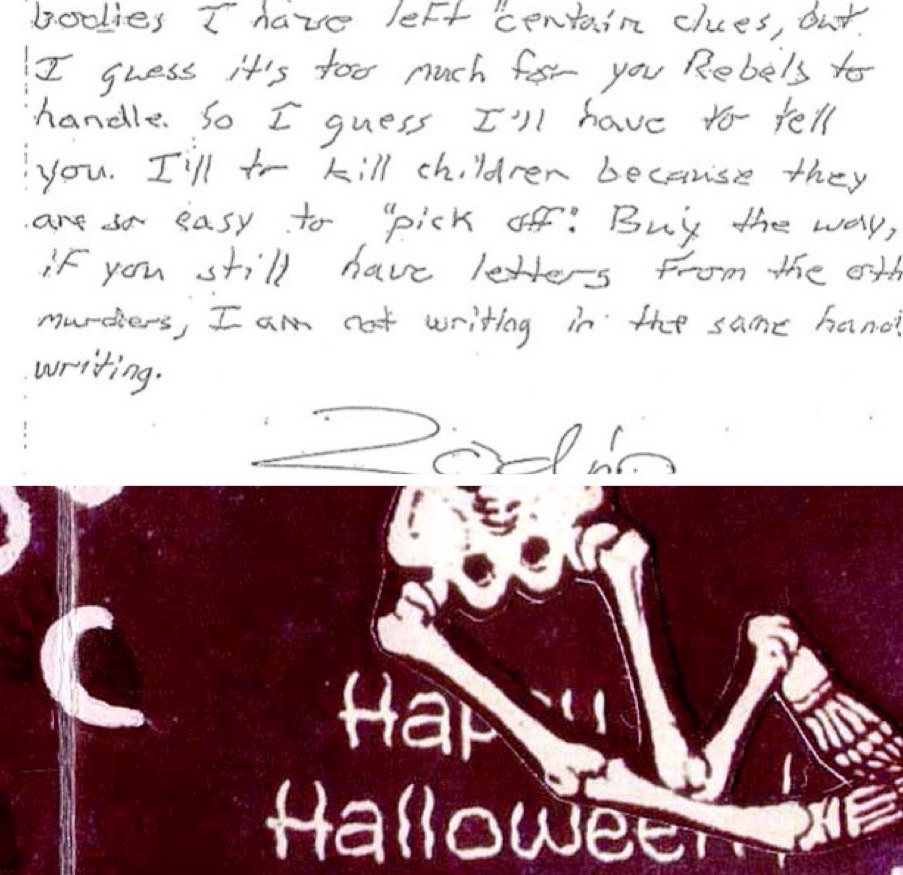 bodies I have left "certain clues, but
I guess it's too much for you Rebels to
handle. So I guess I'll have to tell
you. I'll to kill children because they
are so easy to "pick off". Buiy the way,
if you still have letters from the oth
murders, I am not writing in the same hand
writing.
Zodio
C
Happy
Halloween!